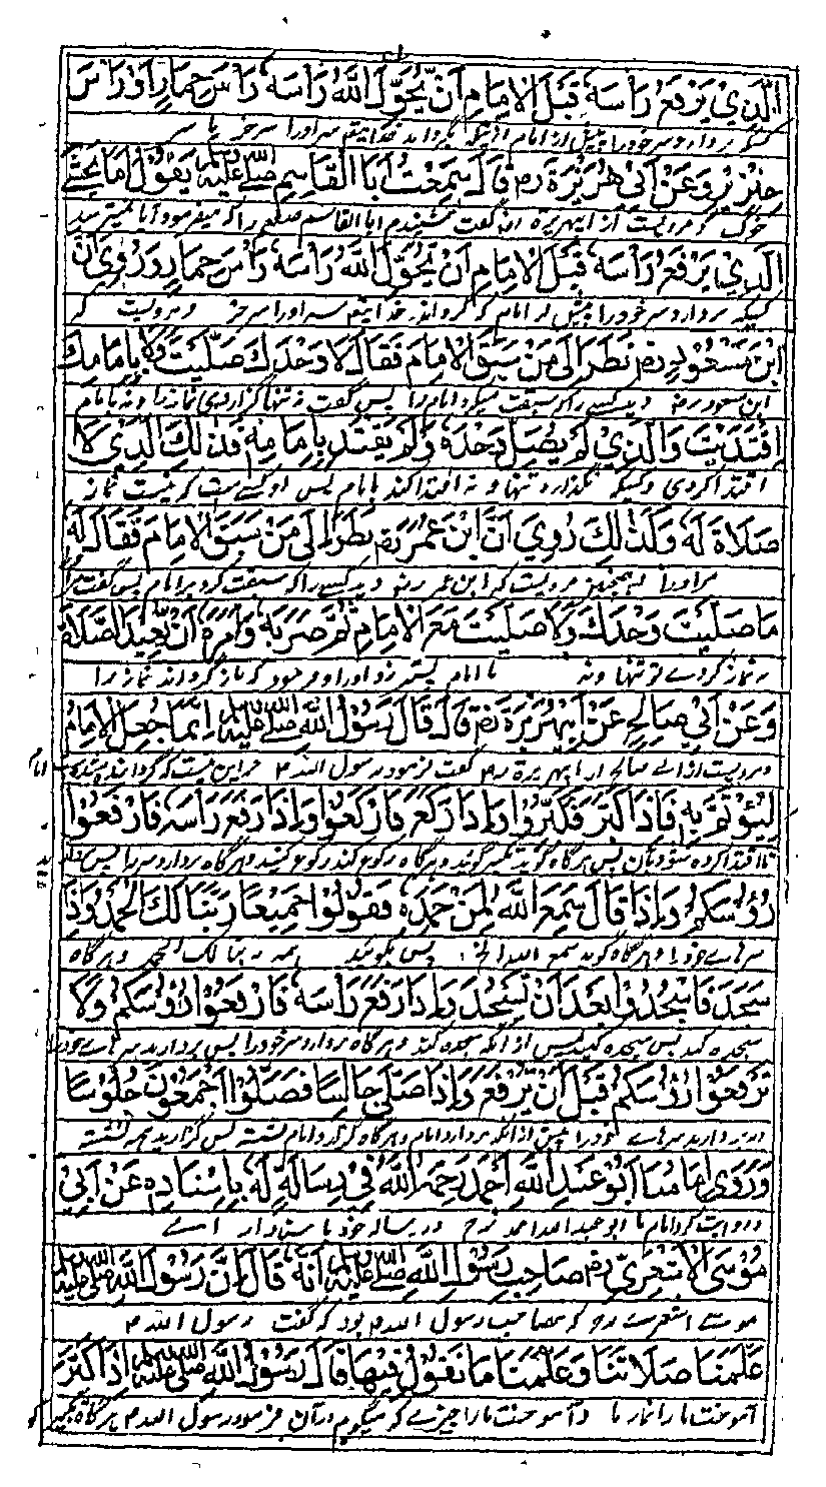 الَّذِيْ يَرْفَعُ رَأْسَهُ قَبْلَ الْاِمَامِ اَنْ يُّحَوِّلَ اللّٰهُ رَأْسَهُ رَأْسَ حِمَارٍ اَوْ رَأْسَ
بردارد سر خود را پیش از امام
خِنْزِيْرٍ وَعَنْ اَبِيْ هُرَيْرَةَ رض قَالَ سَمِعْتُ اَبَا الْقَاسِمِ صلى الله عليه وسلم يَقُوْلُ اَمَا يَخْشٰى
خوک و مرویست از ابیهریره گفت شنیدم ابا القاسم صلعم را که میفرمود آیا نمیترسد
الَّذِيْ يَرْفَعُ رَأْسَهُ قَبْلَ الْاِمَامِ اَنْ يُحَوِّلَ اللّٰهُ رَأْسَهُ رَأْسَ حِمَارٍ وَرُوِيَ اَنَّ
کسیکه بردارد سر خود را پیش از امام که گرداند خدایتعم سر او را سر خر و مرویست که
ابْنَ مَسْعُوْدٍ رض نَظَرَ اِلٰى مَنْ سَبَقَ الْاِمَامَ فَقَالَ لَا وَحْدَكَ صَلَّيْتَ وَلَا بِاِمَامِكَ
ابن مسعود رض دید کسی را که سبقت میکرد امام را پس گفت نه تنها گزاردی نماز را و نه بامام
اقْتَدَيْتَ وَالَّذِيْ لَمْ يُصَلِّ وَحْدَهُ وَلَمْ يَقْتَدِ بِاِمَامِهِ فَذٰلِكَ الَّذِيْ لَا
اقتدا کردی و کسیکه نگذارد تنها و نه اقتدا کند بامام پس او کسے ست که نیست نماز
صَلَاةَ لَهُ وَكَذٰلِكَ رُوِيَ اَنَّ ابْنَ عُمَرَ رض نَظَرَ اِلٰى مَنْ سَبَقَ الْاِمَامَ فَقَالَ لَهُ
مر او را همچنین مرویست که ابن عمر رض دید کسی را که سبقت کرد بر امام پس گفت
مَا صَلَّيْتَ وَحْدَكَ وَلَا صَلَّيْتَ مَعَ الْاِمَامِ ثُمَّ ضَرَبَهُ وَاَمَرَهُ اَنْ يُّعِيْدَ الصَّلَاةَ
نه نماز کردے تو تنها و نه با امام پستر زد او را و فرمود که باز گرداند نماز را
وَعَنْ اَبِيْ صَالِحٍ عَنْ اَبِيْهُرَيْرَةَ رض قَالَ قَالَ رَسُوْلُ اللّٰهِ صلى الله عليه وسلم اِنَّمَا جُعِلَ الْاِمَامُ
مرویست از ابی صالح از ابیهریرة رض گفت فرمود رسول الله م جز این نیست که گردانیده شده است امام
لِيُؤْتَمَّ بِهِ فَاِذَا كَبَّرَ فَكَبِّرُوْا وَاِذَا رَكَعَ فَارْكَعُوْا وَاِذَا رَفَعَ رَأْسَهُ فَارْفَعُوْا
تا اقتدا کرده شود بآن پس هرگاه گوید تکبیر گوئید و هرگاه رکوع کند رکوع کنید و هرگاه بردارد سر را پس
رُؤُسَكُمْ وَاِذَا قَالَ سَمِعَ اللّٰهُ لِمَنْ حَمِدَهُ فَقُوْلُوْا جَمِيْعًا رَبَّنَا لَكَ الْحَمْدُ وَاِذَا
سرهاے خود را و هرگاه گوید سمع الله الخ پس بگوئید همه ربنا لک الحمد و هرگاه
سَجَدَ فَاسْجُدُوْا بَعْدَ اَنْ يَّسْجُدَ وَاِذَا رَفَعَ رَأْسَهُ فَارْفَعُوْا رُؤُسَكُمْ وَلَا
سجده کند پس سجده کنید پس از آنکه سجده کند و هرگاه بردارد سر خود را پس بردارید سرهاے خود را
تَرْفَعُوْا رُؤُسَكُمْ قَبْلَ اَنْ يَّرْفَعَ وَاِذَا صَلّٰى جَالِسًا فَصَلُّوْا اَجْمَعُوْنَ جُلُوْسًا
سرهاے خود را پیش از آنکه بردارد امام و هرگاه گزارد امام نشسته پس گزارید همه نشسته
وَرَوٰى اِمَامُنَا اَبُوْ عَبْدِ اللّٰهِ اَحْمَدُ رَحِمَهُ اللّٰهُ فِيْ رِسَالَةٍ لَهُ بِاِسْنَادِهِ عَنْ اَبِيْ
و روایت کرد امام ما ابو عبد الله احمد رح در رساله خود باسناد از ابے
مُوْسَى الْاَشْعَرِيِّ رض صَاحِبِ رَسُوْلِ اللّٰهِ صلى الله عليه وسلم اَنَّهُ قَالَ اِنَّ رَسُوْلَ اللّٰهِ صلى الله عليه وسلم
موسے اشعرے رض که صاحب رسول الله م بود که گفت رسول الله م
عَلَّمَنَا صَلَاتَنَا وَعَلَّمَنَا مَا نَقُوْلُ فِيْهَا قَالَ رَسُوْلُ اللّٰهِ صلى الله عليه وسلم اِذَا كَبَّرَ
آموخت ما را نماز ما و آموخت ما را چیزے که میگویم در آن فرمود رسول الله م هرگاه تکبیر